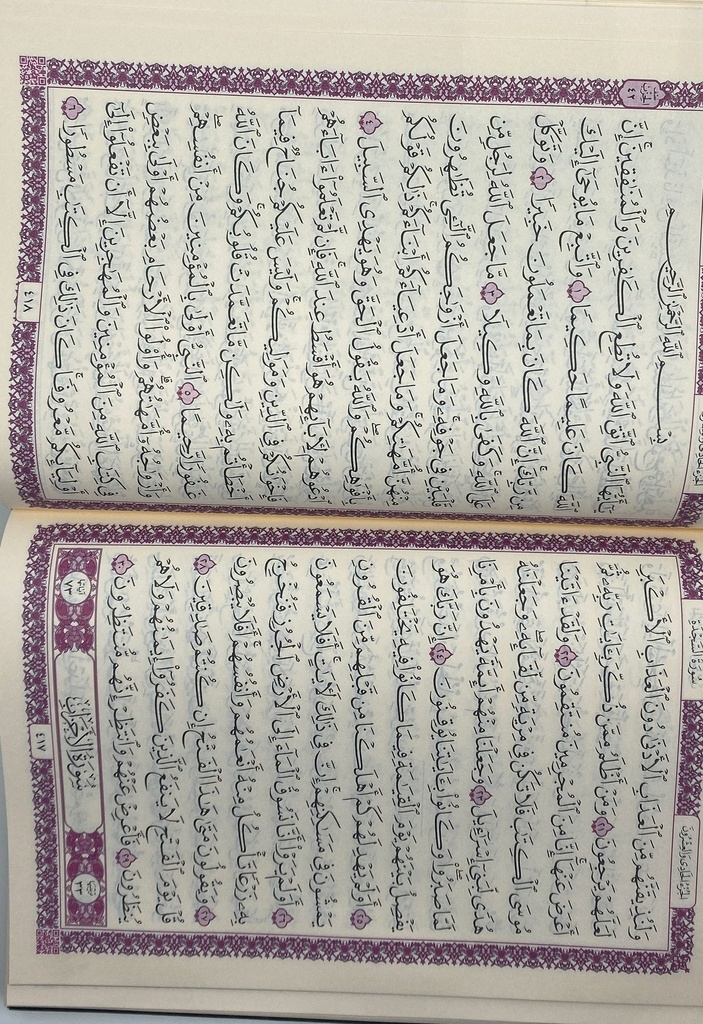 سُورَةُ السَّجْدَةِ
الجُزْءُ الحَادِي وَالعِشْرُونَ
وَلَنُذِيقَنَّهُم مِّنَ ٱلْعَذَابِ ٱلْأَدْنَىٰ دُونَ ٱلْعَذَابِ ٱلْأَكْبَرِ
لَعَلَّهُمْ يَرْجِعُونَ ٢١ وَمَنْ أَظْلَمُ مِمَّن ذُكِّرَ بِـَٔايَـٰتِ رَبِّهِۦ ثُمَّ
أَعْرَضَ عَنْهَآ إِنَّا مِنَ ٱلْمُجْرِمِينَ مُنتَقِمُونَ ٢٢ وَلَقَدْ ءَاتَيْنَا
مُوسَى ٱلْكِتَـٰبَ فَلَا تَكُن فِى مِرْيَةٍ مِّن لِّقَآئِهِۦ وَجَعَلْنَـٰهُ
هُدًى لِّبَنِىٓ إِسْرَٰٓءِيلَ ٢٣ وَجَعَلْنَا مِنْهُمْ أَئِمَّةً يَهْدُونَ بِأَمْرِنَا
لَمَّا صَبَرُوا۟ وَكَانُوا۟ بِـَٔايَـٰتِنَا يُوقِنُونَ ٢٤ إِنَّ رَبَّكَ هُوَ
يَفْصِلُ بَيْنَهُمْ يَوْمَ ٱلْقِيَـٰمَةِ فِيمَا كَانُوا۟ فِيهِ يَخْتَلِفُونَ
٢٥ أَوَلَمْ يَهْدِ لَهُمْ كَمْ أَهْلَكْنَا مِن قَبْلِهِم مِّنَ ٱلْقُرُونِ
يَمْشُونَ فِى مَسَـٰكِنِهِمْ إِنَّ فِى ذَٰلِكَ لَـَٔايَـٰتٍ أَفَلَا يَسْمَعُونَ
٢٦ أَوَلَمْ يَرَوْا۟ أَنَّا نَسُوقُ ٱلْمَآءَ إِلَى ٱلْأَرْضِ ٱلْجُرُزِ فَنُخْرِجُ
بِهِۦ زَرْعًا تَأْكُلُ مِنْهُ أَنْعَـٰمُهُمْ وَأَنفُسُهُمْ أَفَلَا يُبْصِرُونَ
٢٧ وَيَقُولُونَ مَتَىٰ هَـٰذَا ٱلْفَتْحُ إِن كُنتُمْ صَـٰدِقِينَ ٢٨
قُلْ يَوْمَ ٱلْفَتْحِ لَا يَنفَعُ ٱلَّذِينَ كَفَرُوٓا۟ إِيمَـٰنُهُمْ وَلَا هُمْ
يُنظَرُونَ ٢٩ فَأَعْرِضْ عَنْهُمْ وَٱنتَظِرْ إِنَّهُم مُّنتَظِرُونَ ٣٠
سُورَةُ الأَحْزَابِ
٤١٧
بِسْمِ ٱللَّهِ ٱلرَّحْمَـٰنِ ٱلرَّحِيمِ
يَـٰٓأَيُّهَا ٱلنَّبِىُّ ٱتَّقِ ٱللَّهَ وَلَا تُطِعِ ٱلْكَـٰفِرِينَ وَٱلْمُنَـٰفِقِينَ إِنَّ
ٱللَّهَ كَانَ عَلِيمًا حَكِيمًا ١ وَٱتَّبِعْ مَا يُوحَىٰٓ إِلَيْكَ
مِن رَّبِّكَ إِنَّ ٱللَّهَ كَانَ بِمَا تَعْمَلُونَ خَبِيرًا ٢ وَتَوَكَّلْ
عَلَى ٱللَّهِ وَكَفَىٰ بِٱللَّهِ وَكِيلًا ٣ مَّا جَعَلَ ٱللَّهُ لِرَجُلٍ مِّن
قَلْبَيْنِ فِى جَوْفِهِۦ وَمَا جَعَلَ أَزْوَٰجَكُمُ ٱلَّـٰٓـِٔى تُظَـٰهِرُونَ
مِنْهُنَّ أُمَّهَـٰتِكُمْ وَمَا جَعَلَ أَدْعِيَآءَكُمْ أَبْنَآءَكُمْ ذَٰلِكُمْ قَوْلُكُم
بِأَفْوَٰهِكُمْ وَٱللَّهُ يَقُولُ ٱلْحَقَّ وَهُوَ يَهْدِى ٱلسَّبِيلَ ٤
ٱدْعُوهُمْ لِـَٔابَآئِهِمْ هُوَ أَقْسَطُ عِندَ ٱللَّهِ فَإِن لَّمْ تَعْلَمُوٓا۟ ءَابَآءَهُمْ
فَإِخْوَٰنُكُمْ فِى ٱلدِّينِ وَمَوَٰلِيكُمْ وَلَيْسَ عَلَيْكُمْ جُنَاحٌ فِيمَآ
أَخْطَأْتُم بِهِۦ وَلَـٰكِن مَّا تَعَمَّدَتْ قُلُوبُكُمْ وَكَانَ ٱللَّهُ
غَفُورًا رَّحِيمًا ٥ ٱلنَّبِىُّ أَوْلَىٰ بِٱلْمُؤْمِنِينَ مِنْ أَنفُسِهِمْ
وَأَزْوَٰجُهُۥٓ أُمَّهَـٰتُهُمْ وَأُو۟لُوا۟ ٱلْأَرْحَامِ بَعْضُهُمْ أَوْلَىٰ بِبَعْضٍ
فِى كِتَـٰبِ ٱللَّهِ مِنَ ٱلْمُؤْمِنِينَ وَٱلْمُهَـٰجِرِينَ إِلَّآ أَن تَفْعَلُوٓا۟ إِلَىٰٓ
أَوْلِيَآئِكُم مَّعْرُوفًا كَانَ ذَٰلِكَ فِى ٱلْكِتَـٰبِ مَسْطُورًا ٦
٤١٨